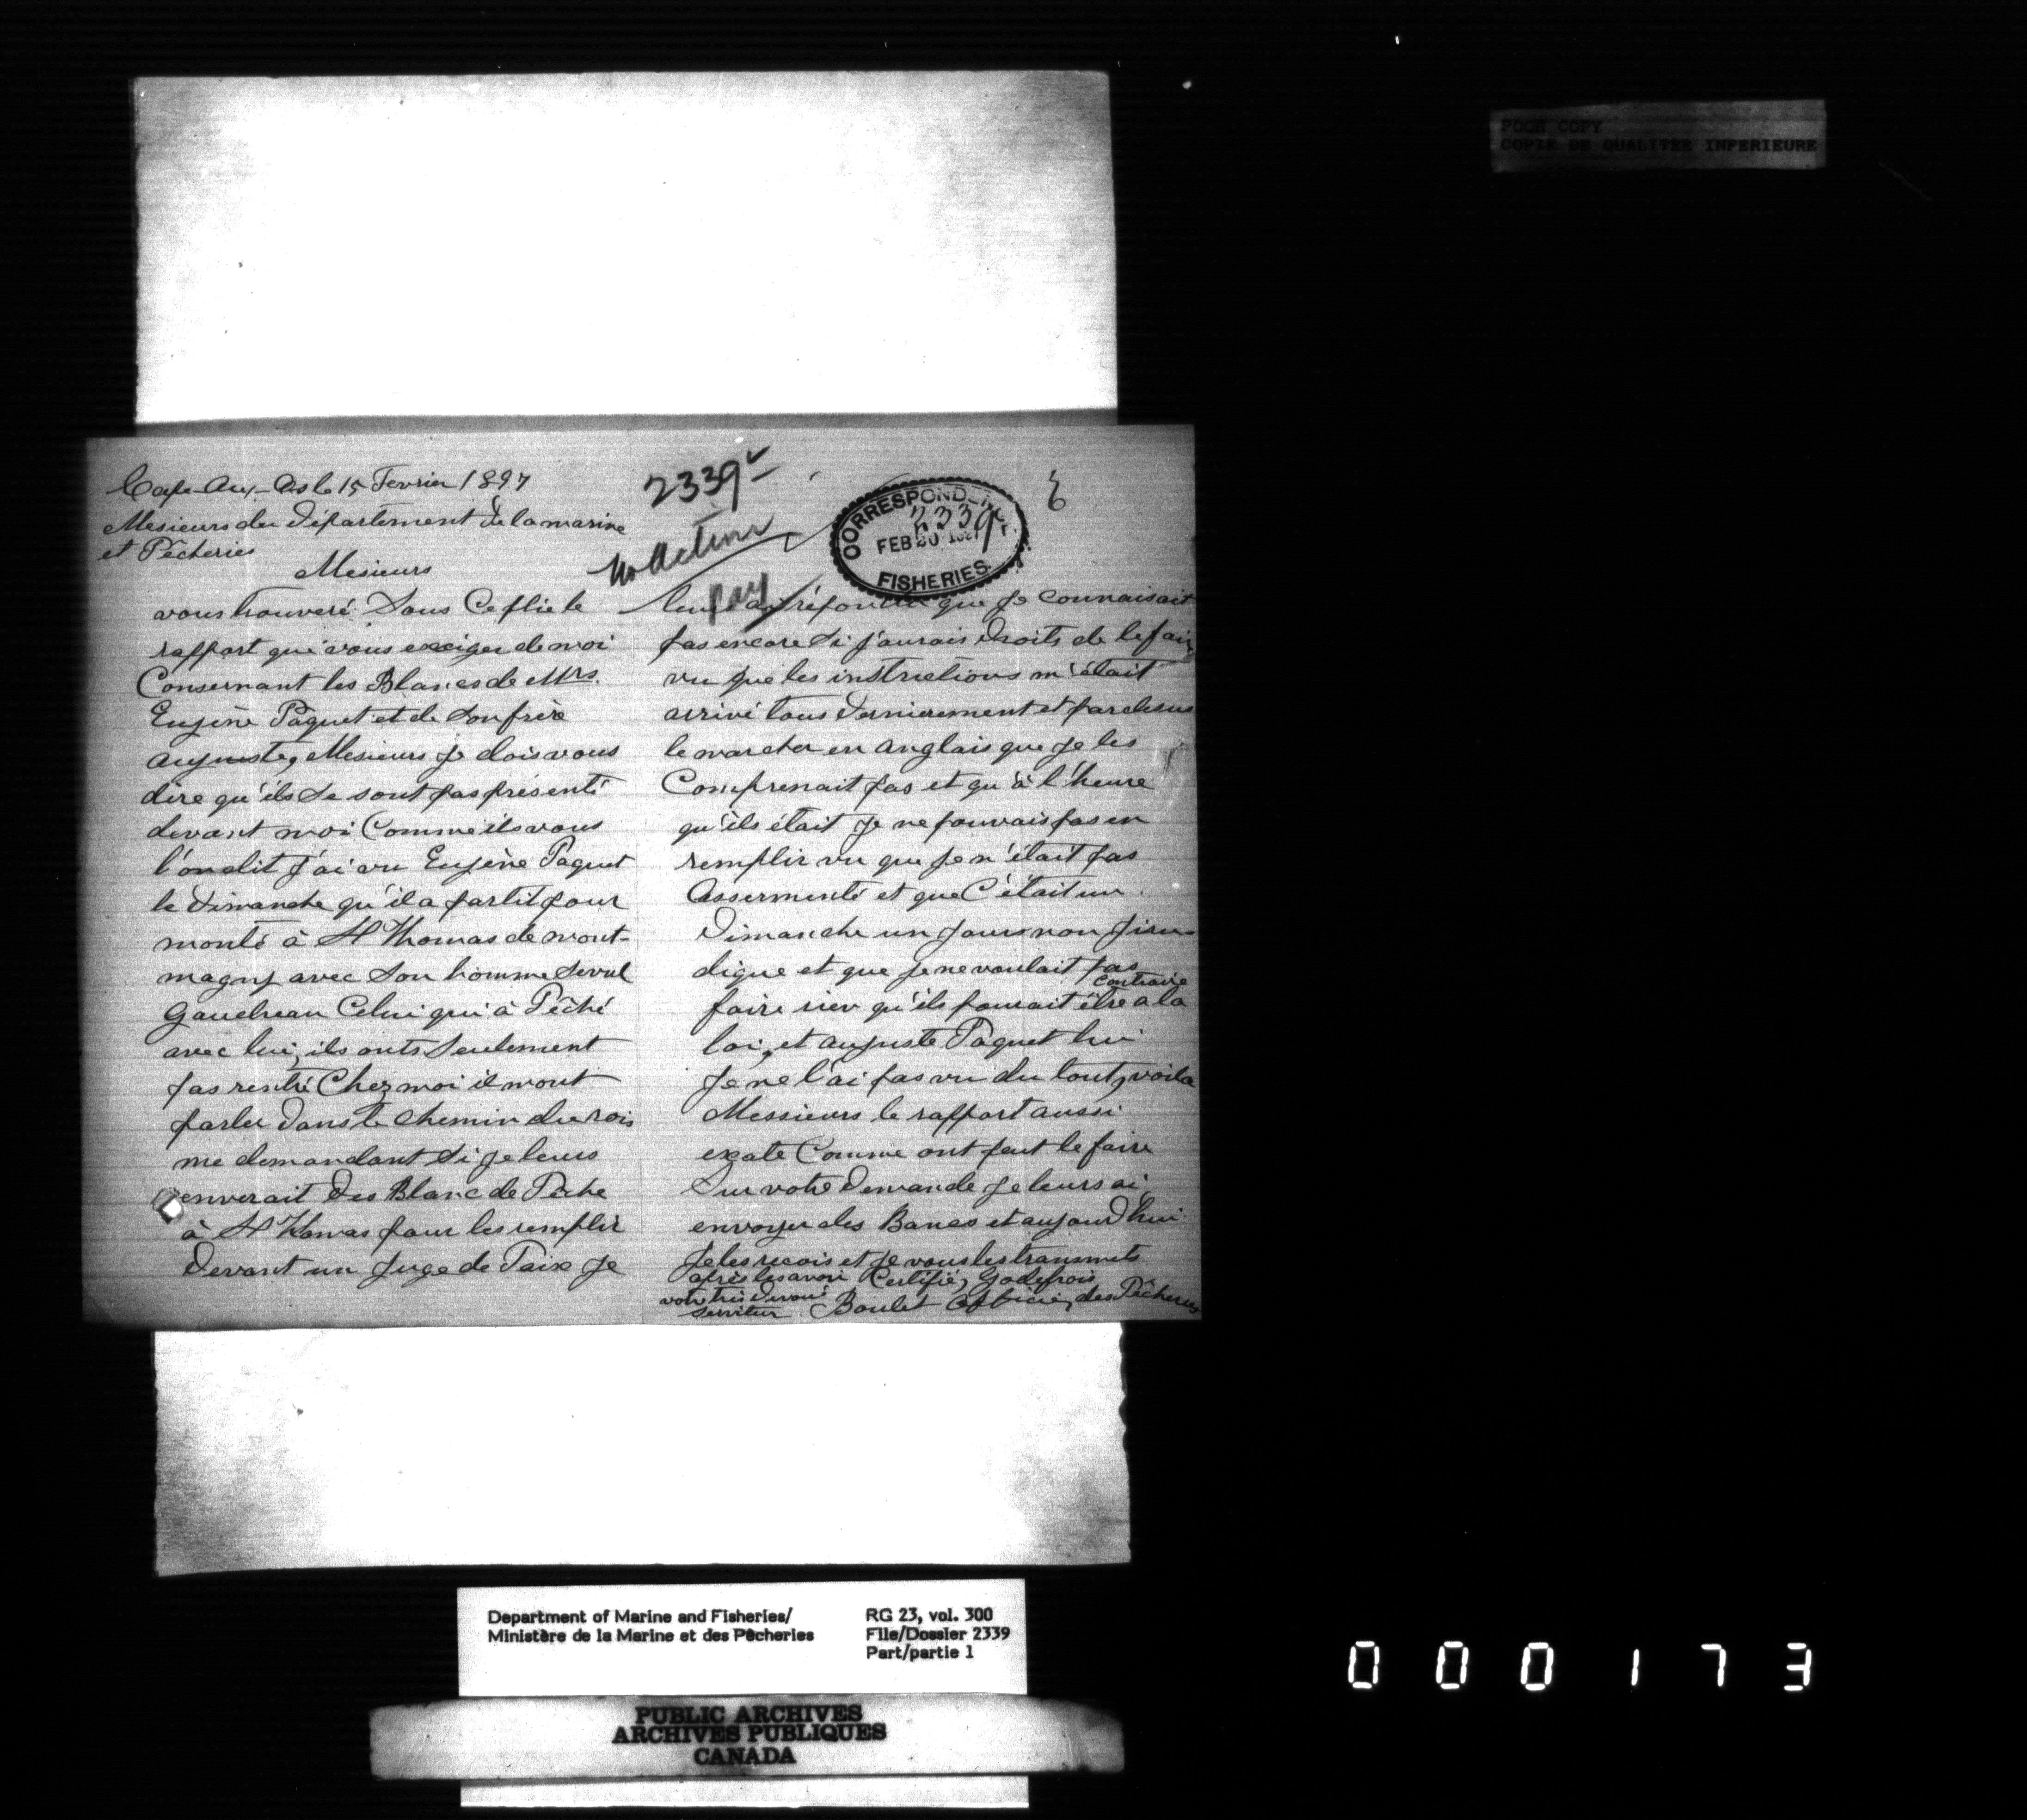 POOR COPY
COPIE DE QUALITEE INFERIEURE
Cape-Aux-Os le 15 Fevrier 1897
Mesieurs du Département de la marine
et Pêcheries
Mesieurs
vous trouveré Sous Ce plie le
rapport que vous exciger de moi
Consernant les Blancs de Mrs.
Eugène Pâquet et de Son frère
auguste, Mesieurs Je dois vous
dire qu'ils Se sont pas présenté
devant moi Comme ils vous
l'on dit J'ai vu Eugène Paquet
le Dimanche qu'il a partit pour
monté à St Thomas de mont-
magny avec Son homme
Gaudreau Celui qui à Pêché
avec lui, ils onts Seulement
pas rentré Chez moi il mont
parler Dans le Chemin du rois
me demandant Si Je leurs
enverait Des Blanc de Pêche
à St Thomas pour les remplir
Devant un Juge de Paix Je
2339
No action
pay
CORRESPONDENCE
2339
FEB 20 1897
FISHERIES
leurs ai répondu que Je Connaisait
pas encore Si J'aurais Droits de le faire
vu que les instructions m'était
arrivé tous Dernierement et par desus
le marcher en anglais que Je les
Comprenait pas et qu'à l'heure
qu'ils était Je ne pouvais pas en
remplir vu que Je n'était pas
Assermenté et que C'était un
Dimanche un Jours non Jiru-
dique et que Je ne voulait pas
faire rien qu'ils pourait être contraire a la
loi, et auguste Paquet lui
Je ne l'ai pas vu du tout, voila
Messieurs le rapport aussi
exate Comme ont peut le faire
Sur votre Demande Je leurs ai
envoyer des Bancs et aujourd'hui
Je les recois et Je vous les transmets
après les avoir Certifié, Godefrois
votre très Devoué
Serviteur. Boulet Officier des Pêcheries
Department of Marine and Fisheries/
Ministère de la Marine et des Pêcheries
RG 23, vol. 300
File/Dossier 2339
Part/partie 1
PUBLIC ARCHIVES
ARCHIVES PUBLIQUES
CANADA
000173